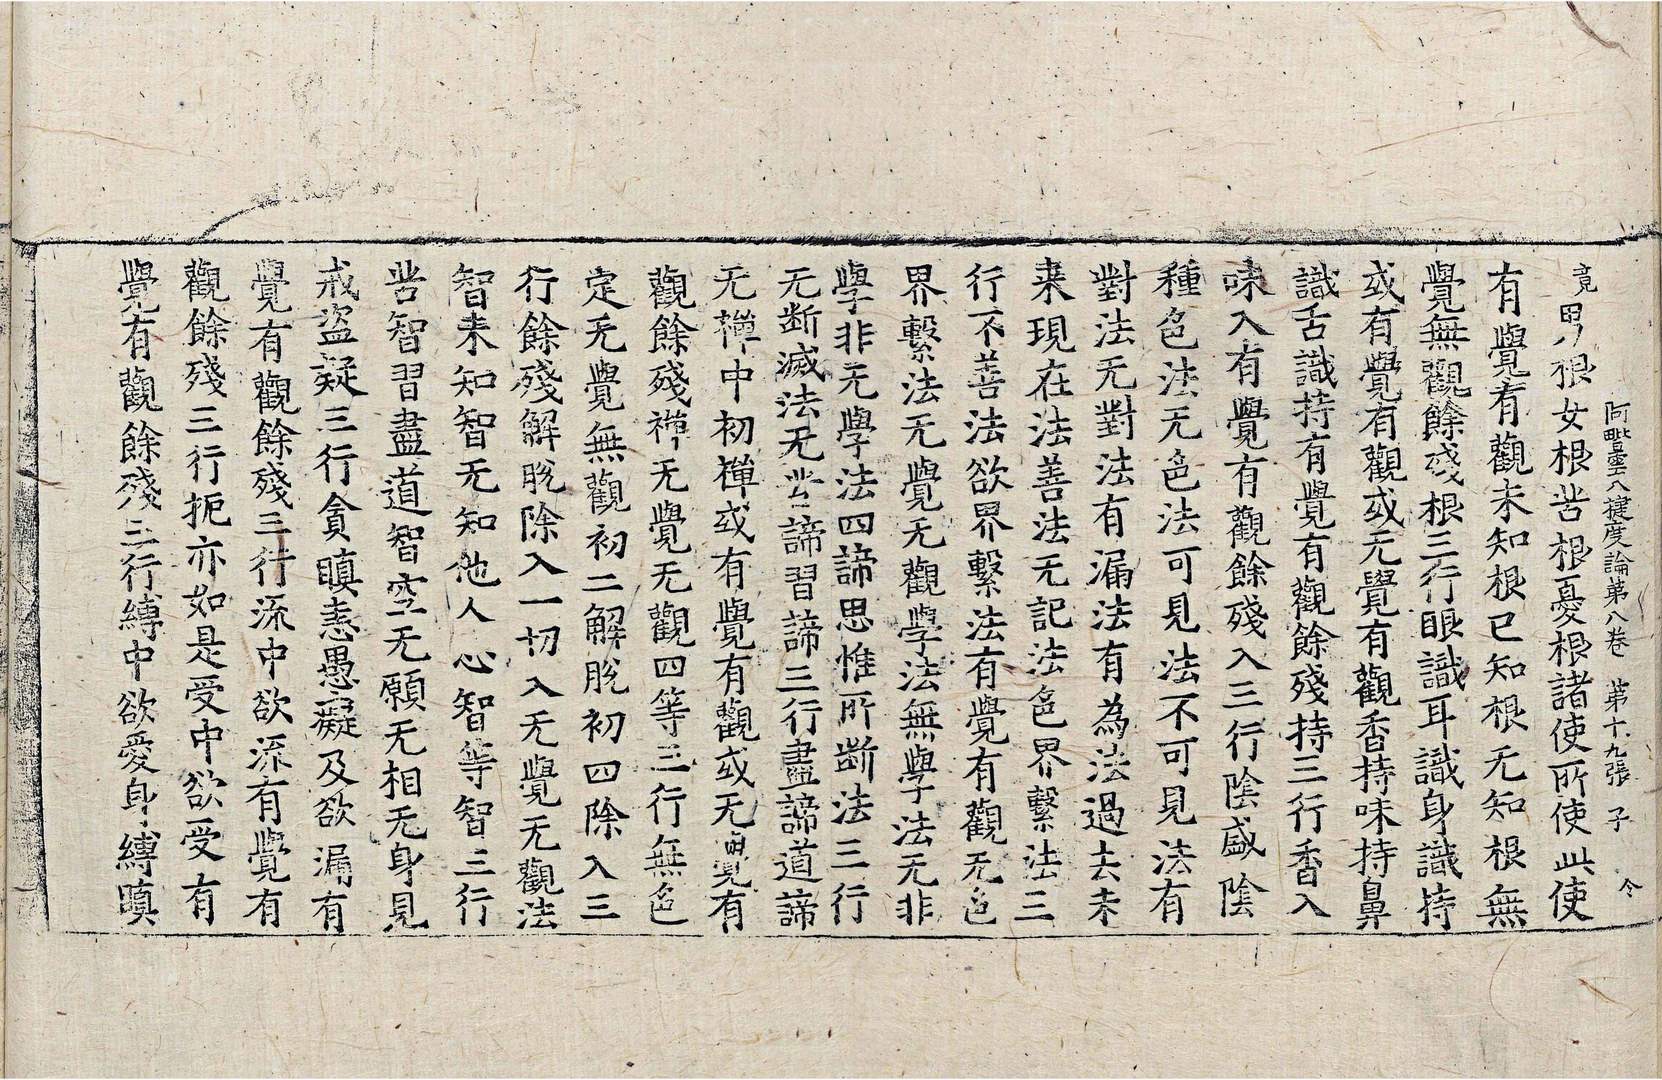 阿毗曇八揵度論第八卷 第十九張 子 今
竟
男根女根苦根憂根諸使所使此使
有覺有觀未知根已知根无知根無
覺無觀餘殘根三行眼識耳識身識持
或有覺有觀或无覺有觀香持味持鼻
識舌識持有覺有觀餘殘持三行香入
味入有覺有觀餘殘入三行陰盛陰
種色法无色法可見法不可見法有
對法无對法有漏法有為法過去未
来現在法善法无記法色界繫法三
行不善法欲界繫法有覺有觀无色
界繫法无覺无觀學法無學法无非
學非无學法四諦思惟所断法三行
无断滅法无苦諦習諦三行盡諦道諦
无禪中初禪或有覺有觀或无覺有
觀餘殘禪无覺无觀四等三行無色
定无覺無觀初二解脫初四除入三
行餘殘解脫除入一切入无覺无觀法
智未知智无知他人心智等智三行
苦智習盡道智空无願无相无身見
戒盜疑三行貪瞋恚愚癡及欲漏有
覺有觀餘殘三行流中欲流有覺有
觀餘殘三行扼亦如是受中欲受有
覺有觀餘殘三行縛中欲愛身縛瞋